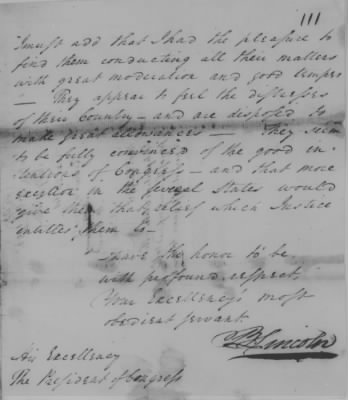 111
I must add that I had the pleasure to
find them conducting all their matters
with great moderation and good temper
— They appear to feel the distresses
of their Country — and are disposed to
make great allowances — They seem
to be fully convinced of the good in-
tentions of Congress — and that more
exertion in the several States would
give them that relief which Justice
entitles them to —
I have the honor to be
with profound respect
Your Excellency's most
obedient servant
B Lincoln
His Excellency
The President of Congress